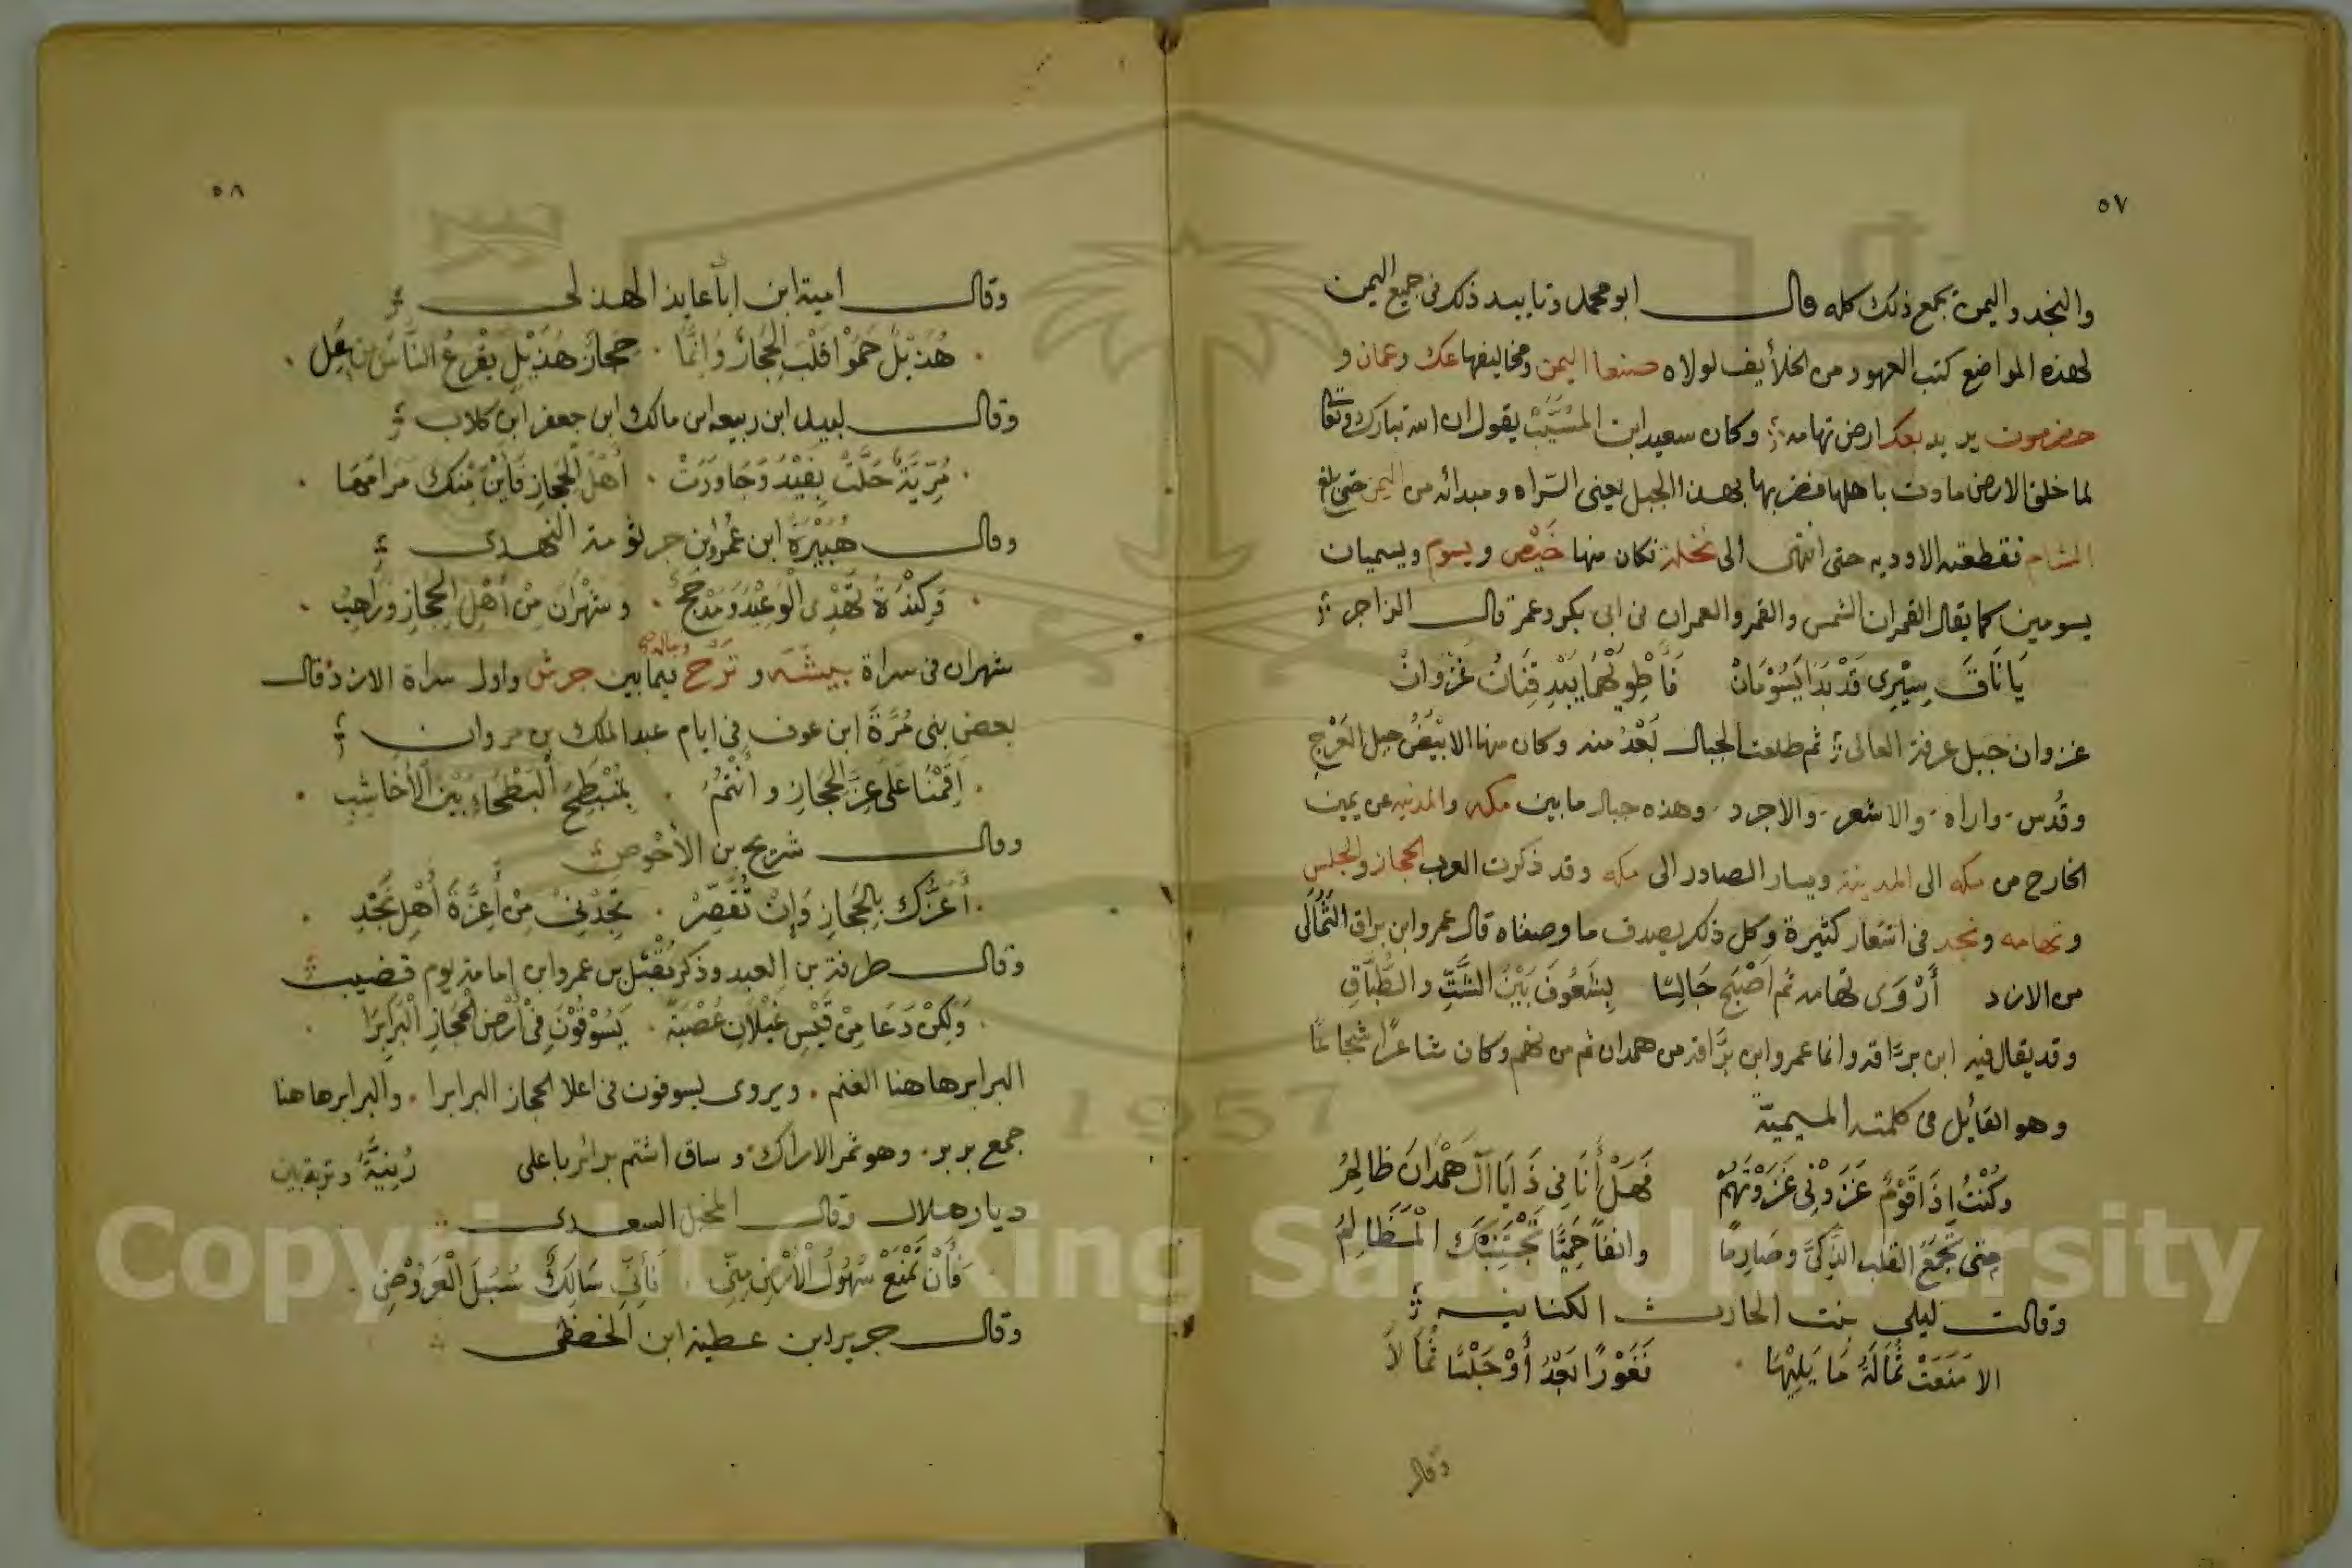 ٥٧
والنجد واليمن يجمع ذلك كله قال ابو محمد وتاييد ذلك في جميع اليمن
لهذه المواضع كتب العهود من الخلأيف لولاه صنعا اليمن ومخاليفها عك وعمان و
حضرموت يريد بعك ارض تهامه وكان سعيد ابن المسَيَّبْ يقول ان الله تبارك وتعالى
لما خلق الارض مادت باهلها فضربها بهذا الجبل يعنى السّراه ومبدائه من اليمن حتى بلغ
الشام فقطعته الاوديه حتى انتهى الى نخلة فكان منها خَيْص ويسوم ويسميان
يسومين كما يقال القمران الشمس والقمر والعمران في ابي بكر وعمر قال الراجز
يَا نَاقَ سِيْرِى قَدْ بَدَا يَسُوْمَانْ فَأطْوِيْهُمَا يَبْدِ قِنَانُ غَزْوانْ
غزوان جبل عرفة العالى ثم طلعت الجبال بَعْدُ منه وكان منها الابْيَضُ جبل العَرْج
وقُدس والاراه والاشعر والاجرد وهذه جبال ما بين مكه والمدنيه عن يمين
الخارج من مكه الى المدينة ويسار الصادر الى مكه وقد ذكرت العرب الحجاز والجلس
وتهامه ونجد في اشعار كثيرة وكل ذلك يصدق ما وصفناه قال عمرو ابن براق الثُمَالَى
من الازد أَرْوَى تهامه ثم اَصْبَحَ جَالِسًا بِشَعُوفَ بَيْنَ الشَّتِّ والطُّبَّاقِ
وقد يقال فيه ابن برَّاقه وانما عمرو ابن برَّاقه من همدان ثم من نهم وكان شاعرًا شجاعًا
وهو القائل في كلمته الميميّة
وكُنْتُ اِذَا قَوْمٌ غَزَوْنِى غَزَوْتُهُمْ فَهَلْ أَنَا فِى ذَا يَا آلَ هَمْدَانَ ظَالِمُ
متى تَجْمَعَ القلب الذَّكِىَّ وصَارِمًا وانفًا حَمِيًّا تَجْتَنِبْكَ الْمَظَالِمُ
وقالت ليلى بنت الحارث الكنانيه
الا مَنَعَتْ ثُمَالَهُ مَا يَلِيْهَا فَغَوْرًا بَعْدُ أَوْ جَلْسًا ثُمَالاَ
وقال
٥٨
وقال امية ابن ابا عايذ الهذلى
هُذَيْلٌ حَمُوْا قَلْبَ الحِجَازِ وَاِنَّمَا حِجَازُ هُذَيْلٍ يَفْرَعُ النَّاسَ مِنْ عَلِ
وقال لبيد ابن ربيعه ابن مالك ابن جعفر ابن كلاب
مُرِّيَّةٌ حَلَّتْ بِفَيْدَ وَجَاوَرَتْ اَهْلَ الحِجَازِ فَأَيْنَ مِنْكَ مَرَامُهَا
وقال هُبَيْرَة ابن عَمْرو ابن جرثومة النهدى
وَكِنْدَةُ تُهْدِى الْوَعِيْدَ وَمَذْحِجٌ وشَهْرَانُ مِنْ أَهْلِ الحِجَازِ وَرَاهِبُ
شهران فى سراة بيشه و تَرْج وحاله فيما بين جرش واول سراة الازد وقال
بعض بنى مُرَّةَ ابن عوف فى ايام عبد الملك بن مروان
اَقَمْنَا عَلَى عِزِّ الحِجَازِ وأَنْتُمُ بِمُنْبَطِحِ الْبَطْحَاءِ بَيْنَ الْأَخَاشِبِ
وقال شريح بن الأحْوص
أَعَزُّكَ بِالحِجَازِ وَإِنْ تُقَصِّرْ تَجِدْنِى مِنْ أَعِزَّةَ أَهْلِ نَجْدِ
وقال طرفة بن العبد وذكر مَقْتَل بن عمرو ابن امامة يوم قضيب
وَلَكِنْ دَعَا مِنْ قَيْسِ عَيْلَانَ عُصْبَةً يَسُوْقُوْنَ فِى أَرْضِ الْحِجَازِ الْبَرَابِرَا
البرابر هاهنا الغنم ويروى يسوقون فى اعلا الحجاز البرابرا والبرابر هاهنا
جمع بربر وهو ثمر الاراك وساق اشتم برائر باعلى رُنِيَّهُ وتربة بين
ديار هلال وقال المخبل السعدى
فَأنْ تَمْنَعْ سُهُولُ الْأَرْضِ مِنِّى فَأِنِّى سَالِكٌ سُبُلَ الْعَرُوْضِ
وقال جرير ابن عطية ابن الخطفى
Copyright © King Saud University
1957